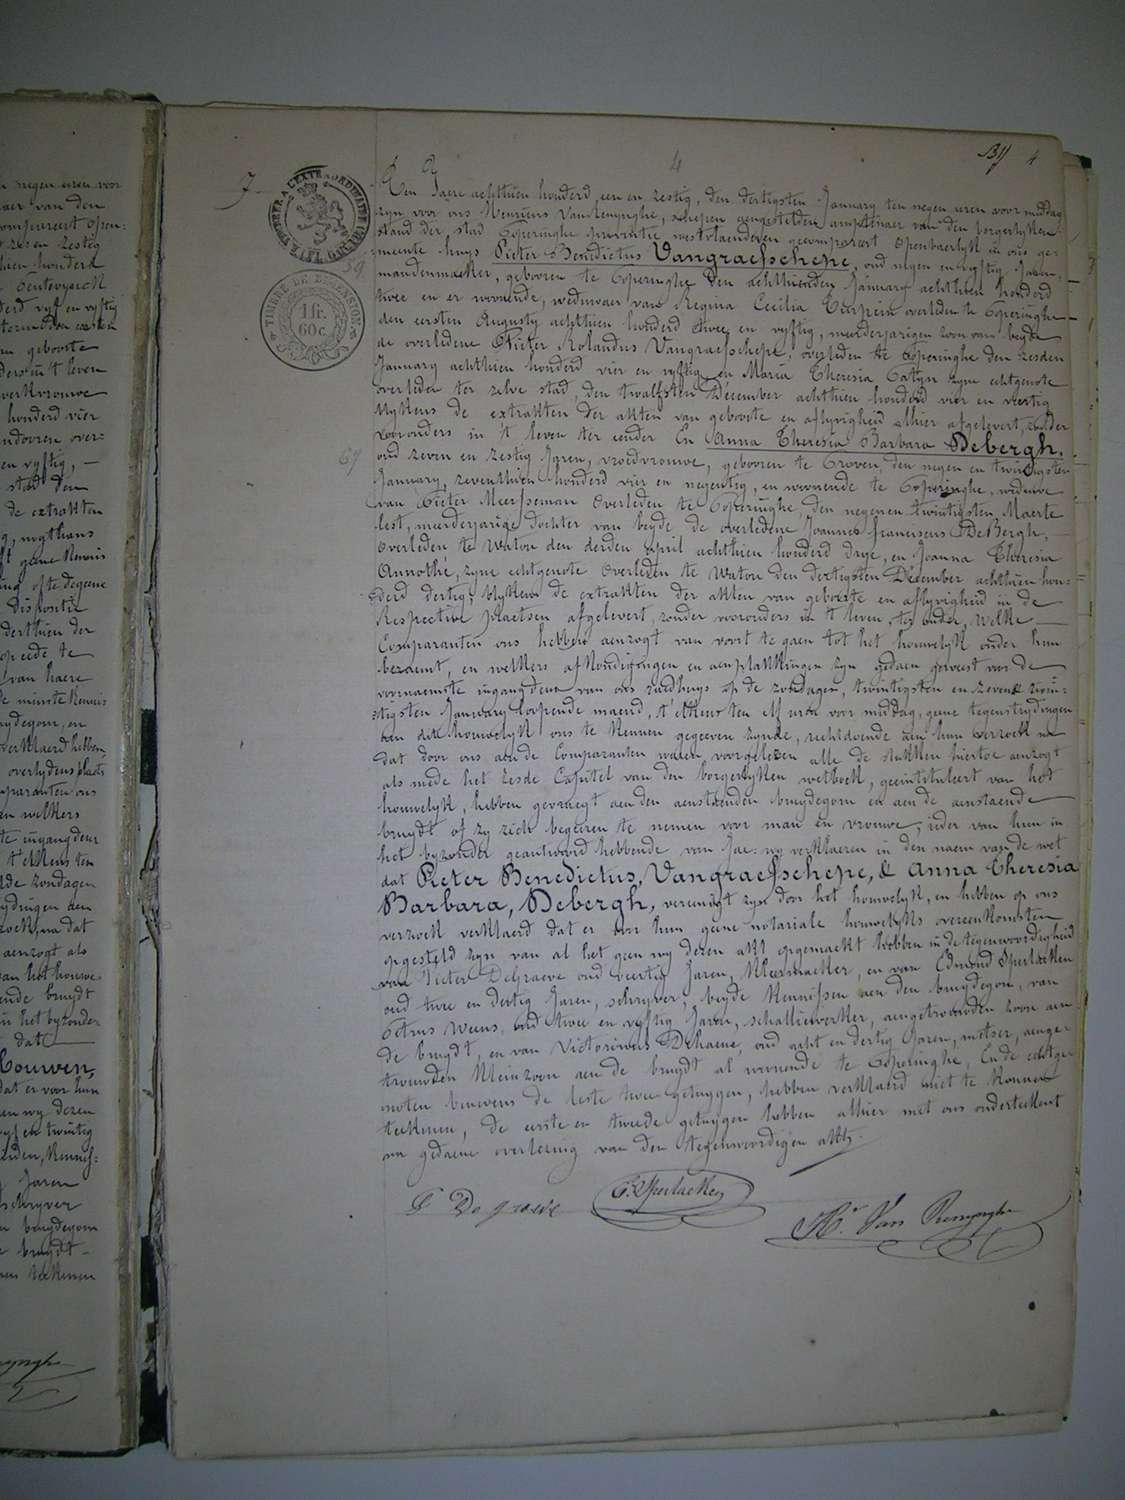 negen uren voor
van den
compareert open:
zes en zestig
honderd
vyf en vyftig
geboorte
in 't leven
honderd vier
over:
en vyftig,
stad den
de extrakten
dispositie
derthien der
van haere
de minste kennis
bruydegom, en
verklaerd hebben
overlydens plaets
comparanten ons
en welkers
ingang deur
t'elkens ten
zondagen
na dat
aenzogt als
van het houwe
bruydt
in het byzonder
dat
Couwen,
dat er voor hun
wy dezen
vyf en twintig
Jaren
schryver
bruydegom
bruydt
teekenen
7
4
4
TIMBRE A L'EXTRAORDINAIRE
TIMBRE DE DIMENSION
1 fr.
60 c.
59
67
Ten Jaere achthien honderd een en zestig, den dertigsten January ten negen uren voor middag
zyn voor ons Henricus Van Renynghe, schepen aengestelden amptenaer van den borgerlyken
stand der stad Poperinghe provintie westvlaenderen gecompareert Openbaerlyk in ons ge-
meente huys Pieter Benedictus Vangraefschepe, oud negen en vyftig Jaren,
mandenmaeker, gebooren te Poperinghe den achthienden January achthien honderd
twee en er woonende, weduwaer van Regina Cecilia overleden te Poperinghe
den eersten Augusty achthien honderd twee en vyftig, meerderjarigen zoon van beyde
de overledene Pieter Rolandus Vangraefschepe, overleden te Poperinghe den zesden
January achthien honderd vier en vyftig en Maria Theresia Catyn zyne echtgenote
overleden ter zelve stad, den twalfsten December achthien honderd vier en veertig
blykens de extrakten der akten van geboorte en aflyvigheid alhier afgelevert, zonder
voorouders in 't leven ter eender En Anna Theresia Barbara Debergh,
oud zeven en zestig Jaren, vroedvrouwe, gebooren te Proven, den negen en twintigsten
January, zeventhien honderd vier en negentig, en woonende te Poperinghe, weduwe
van Pieter Meersseman Overleden te Poperinghe, den negenen twintigsten Maerte
lest, meerderjarige dochter van beyde de overledene Joannes franciscus DeBergh,
Overleden te Watou den derden april achthien honderd drye, en Joanna Theresia
Annothé, zyne echtgenote Overleden te Watou den dertigsten December achthien hon-
derd dertig, blykens de extrakten der akten van geboorte en aflyvigheid in de
Respective plaetsen afgelevert, zonder voorouders in 't leven, ter ander, Welke
Comparanten ons hebben aenzogt van voort te gaen tot het houwelyk onder hun
beraemt, en welkers afkondigingen en aenplakkingen zyn gedaen geweest voor de
voornaemste ingang deur van ons raedhuys op de zondagen, twintigsten en zeven & twin-
tigsten January loopende maend, t'elkens ten elf uren voor middag, geene tegenstrydingen
aen dit houwelyk ons te kennen gegeven zynde, rechtdoende aen hun verzoek na
dat door ons aen de Comparanten waren voorgelezen alle de stukken hiertoe aenzogt
als mede het zesde Capitel van den borgerlyken wetboek, geeintituleert van het
houwelyk, hebben gevraegt aen den aenstaenden bruydegom en aen de aenstaende
bruydt of zy zich begeeren te nemen voor man en vrouwe, ieder van hun in
het byzonder geantwoord hebbende van Jae: wy verklaeren in den naem van de wet
dat Pieter Benedictus, Vangraefschepe, & Anna Theresia
Barbara, Debergh, vereenigt zyn door het houwelyk, en hebben op ons
verzoek verklaerd dat er voor hun geene notariale houwelyks overeenkomsten
opgesteld zyn van al het geen wy dezen akt opgemaekt hebben in de tegenwoordigheid
van Pieter Degraeve oud veertig Jaren, kleermaeker, en van Edmond Sperlaeken
oud twee en dertig Jaren, schryver, beyde kennissen aen den bruydegom, van
Petrus Weens, oud twee en vyftig Jaren, schaliewerker, aengetrouwden zoon aen
de bruydt, en van Victorinus Dehaene, oud acht en dertig Jaren, metser, aenge-
trouwden kleinzoon aen de bruydt al wonende te Poperinghe, En de echtge-
noten benevens de leste twee getuygen, hebben verklaerd niet te konnen
teekenen, de eerste en tweede getuygen hebben alhier met ons onderteekent
na gedaene voorlezing van den tegenwoordigen akt.
P De graeve
E. Sperlaeken
H. Van Renynghe